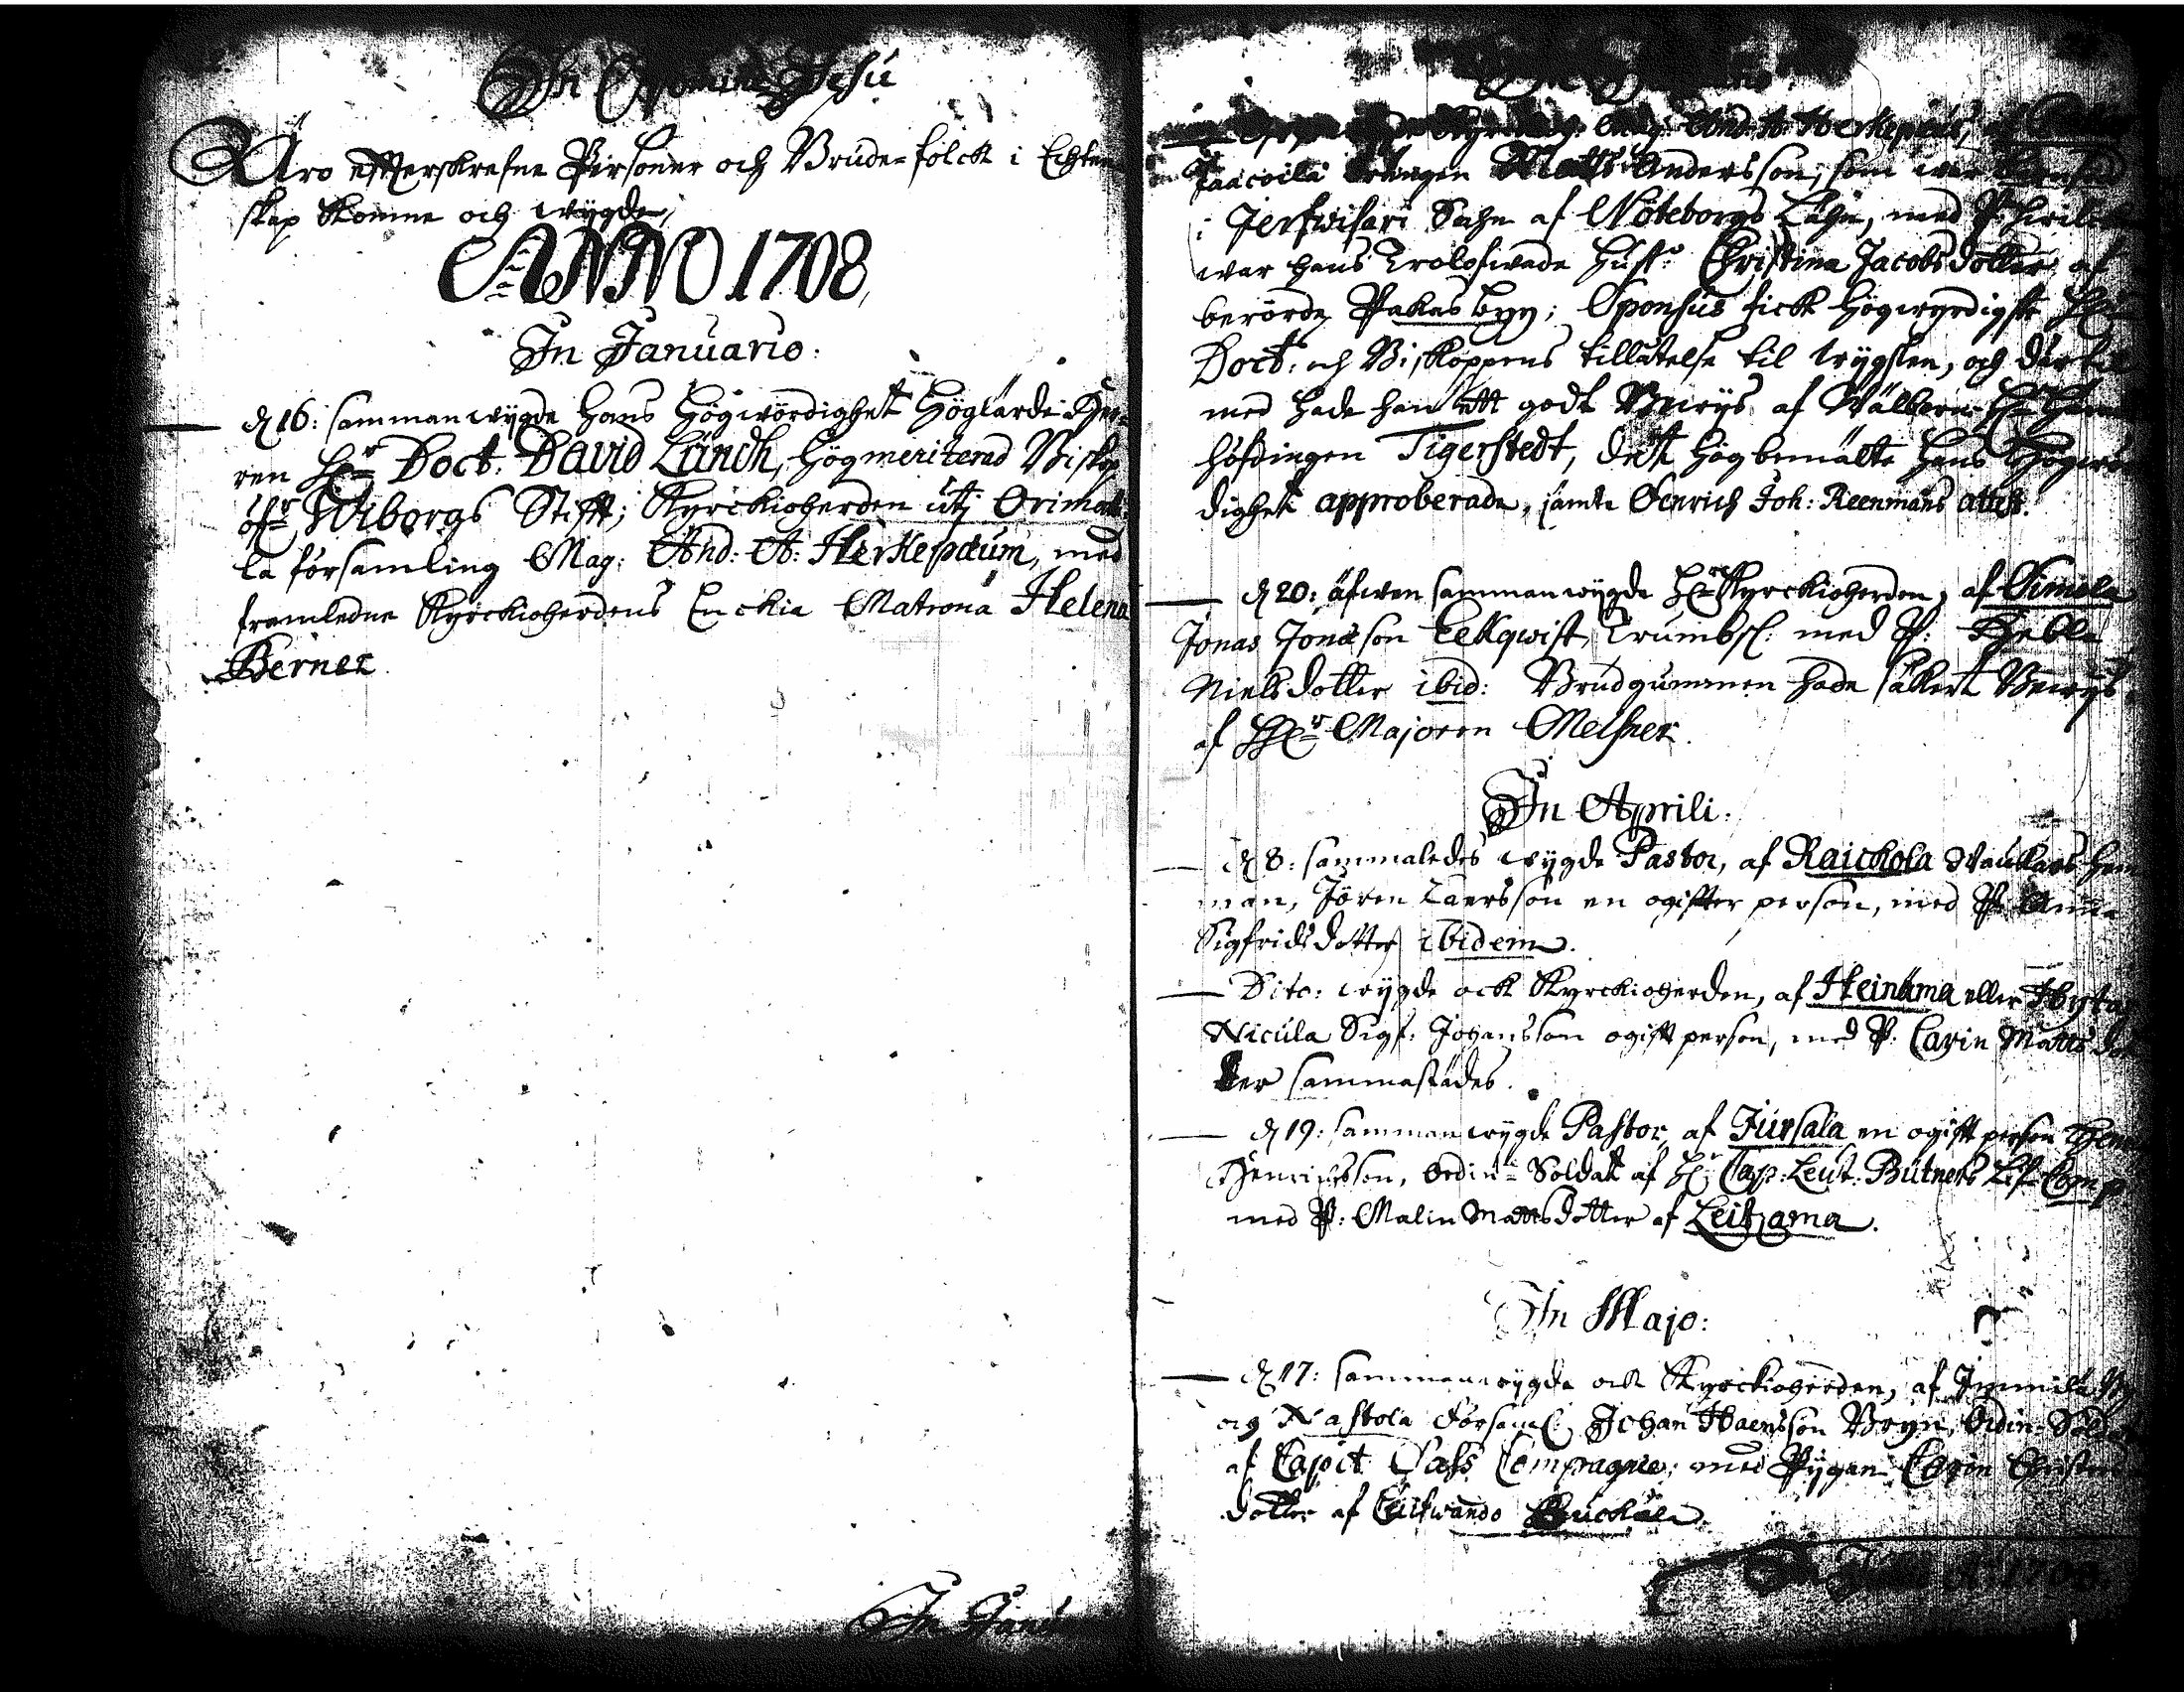 In Nomine Jesu
Äro effterskrefne Personer och Brude-folck i Echten
skap komne och wygde,
ANNO 1708,
In Januario:
d 16: sammanwygde Hans Högwördighet Höglärde Her-
ren Hr Doct: David Lünd, högmeriterad Biskop
öfr Wiborgs Stifft; Kyrckioherden utj Orimatti-
la församling Mag: And: A: Herkepæum, med
framledne Kyrckioherdens Enckia Matrona Helena
Berner.
In Janu
Mag: And: A: Herkepæus,
Jaacoila Matts Andersson, som war
i Jerfwisari Sochn af Nöteborgs Lähn, med P:
war hans Trolofwade Hust: Christina Jacobsdotter af
berörde Pakas byy; Sponsus fick Högwyrdigste
Doct: och Biskoppens tillåtelse til wygslen, och
med hade han ett godt Bewys af Wälborne Hr
höfdingen Tigerstedt, det högbemälte Hans Högwör-
dighet approberade, jämte Henrich Joh: Reenmans attest.
d 20: äfwen sammanwygde Hr Kyrckioherden, af
Jonas Jonæson Eekqwist, Trumbsl: med P: Hebla
Nielsdotter ibid: Brudgummen hade säkert Bewys
af Hr Majoren Melsner.
In Aprili:
d 8: sammaledes wygde Pastor, af Raickola
man, Jören Laersson en ogifter person, med P: Anna
Sigfridsdotter ibidem.
Dito: wygde ock Kyrckioherden, af Heinäma eller
Nicula Sigf: Johansson ogift person, med P. Carin Matts dot
ter sammastädes.
d 19: sammanwygde Pastor, af Jürsala en ogift person
Henrichsson, Ordin: Soldat af Hr Cap: Leut: Bütners Lif-Comp
med P: Malin Mattsdotter af Leitzama.
In Majo:
d 17: sammanwygde ock Kyrckioherden, af
och Nastola församl: Johan Bryn, Ordin: Soldat
af Capit Compagnie; med Pygan Christers
dotter af
1708.